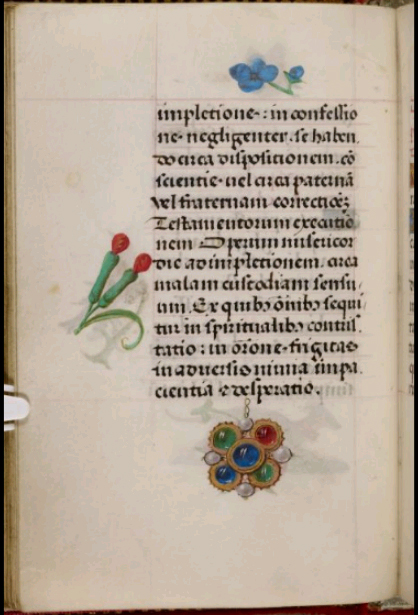 impletione · : in confessio
ne · negligenter · se haben
do circa dispositionem · cō
scientie · uel circa paternā
vel fraternam correctiōēʒ
Testamentorum executio
nem Operum misericor
die adimpletionem · circa
malam custodiam sensu
um · Ex quibꝰ ōnibꝰ sequi
tur in spiritualibꝰ
tatio : in orōne · frigitas
in aduersio nimia impa
cientia ⁊ desperatio ·